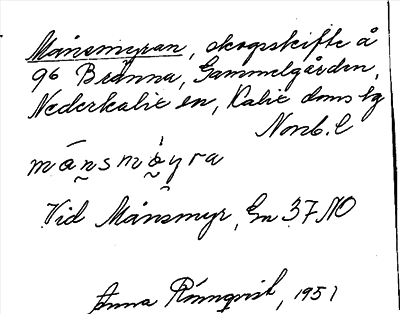 Månsmyran, skogsskifte å
96 Bränna, Gammelgården,
Nederkalix sn, Kalix doms lg
Norrb. l
månsmøyra
Vid Månsmyr, En 37 NO
Anna Rönnqvist, 1951